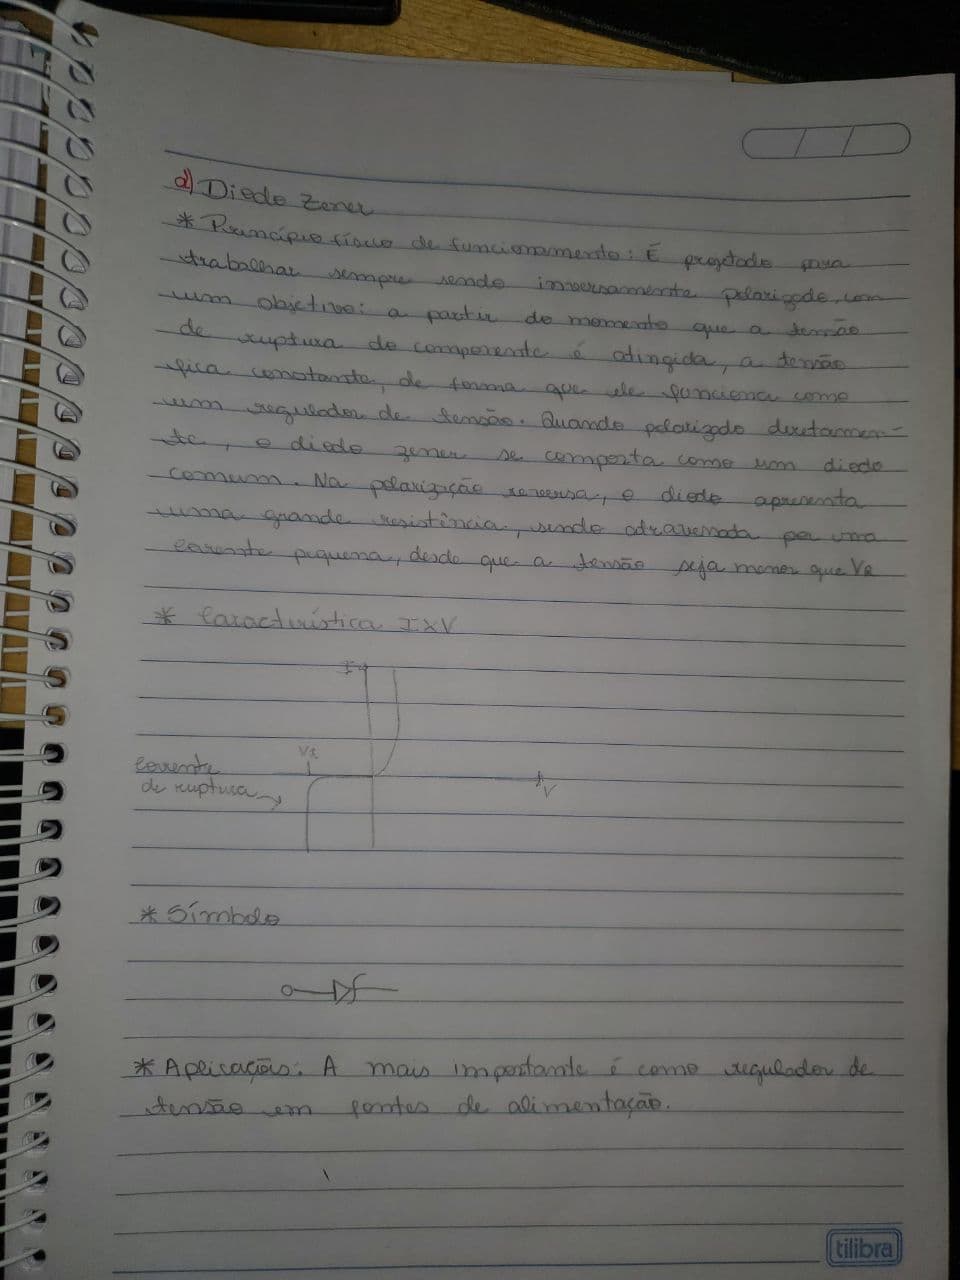 d) Diodo Zener
* Princípio físico de funcionamento: É projetado para
trabalhar sempre sendo inversamente polarizado, com
um objetivo: a partir do momento que a tensão
de ruptura do componente é atingida, a tensão
fica constante, de forma que ele funciona como
um regulador de tensão. Quando polarizado diretamen-
te, o diodo zener se comporta como um diodo
comum. Na polarização reversa, o diodo apresenta
uma grande resistência, sendo atravessada por uma
corrente pequena, desde que a tensão seja menor que VR
* Característica IxV
I
VR
Corrente
de ruptura
V
* Símbolo
* Aplicações: A mais importante é como regulador de
tensão em fontes de alimentação.
tilibra